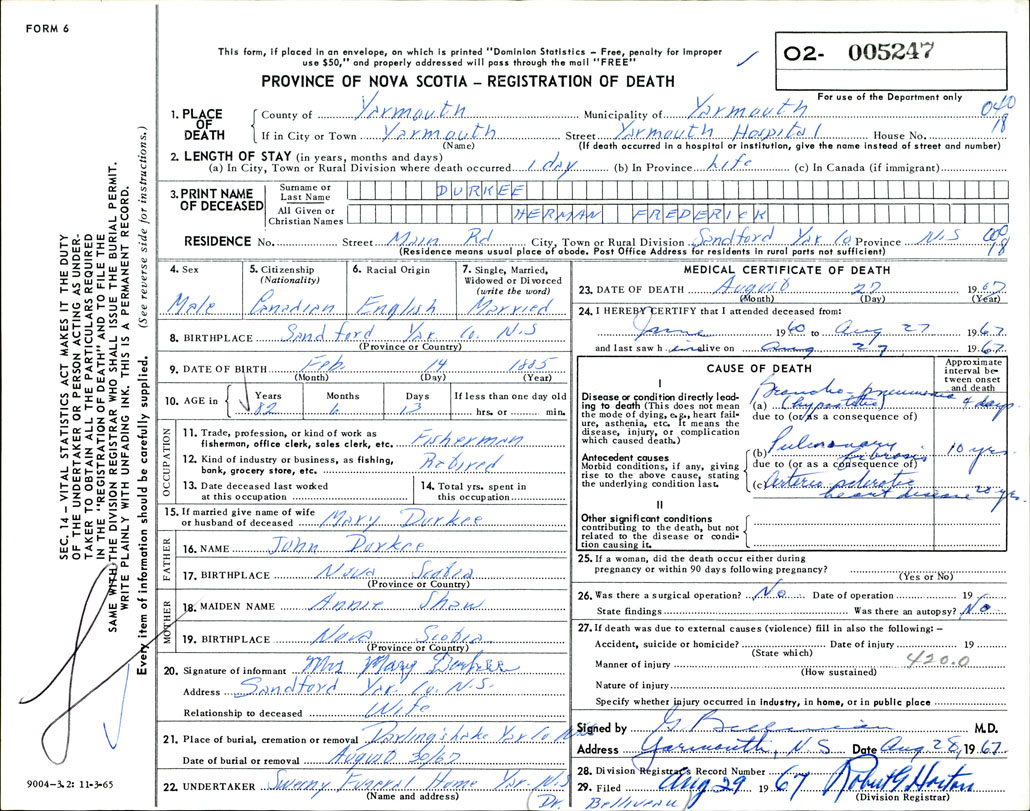 FORM 6
This form, if placed in an envelope, on which is printed "Dominion Statistics – Free, penalty for improper
use $50," and properly addressed will pass through the mail "FREE"
O2- 005247
For use of the Department only
PROVINCE OF NOVA SCOTIA – REGISTRATION OF DEATH
1. PLACE OF DEATH
County of Yarmouth Municipality of Yarmouth 040
If in City or Town Yarmouth Street Yarmouth Hospital House No. 18
(Name) (If death occurred in a hospital or institution, give the name instead of street and number)
2. LENGTH OF STAY (in years, months and days)
(a) In City, Town or Rural Division where death occurred 1 day (b) In Province Life (c) In Canada (if immigrant)
3. PRINT NAME OF DECEASED
Surname or Last Name DURKEE
All Given or Christian Names HERMAN FREDERICK
RESIDENCE No. Street Main Rd City, Town or Rural Division Sandford Yar. Co Province N.S 000
(Residence means usual place of abode. Post Office Address for residents in rural parts not sufficient) 18
4. Sex Male
5. Citizenship (Nationality) Canadian
6. Racial Origin English
7. Single, Married, Widowed or Divorced (write the word) Married
8. BIRTHPLACE Sandford Yar. Co. N.S
(Province or Country)
9. DATE OF BIRTH Feb. 14 1885
(Month) (Day) (Year)
10. AGE in Years Months Days If less than one day old
82 6 13 hrs. or min.
OCCUPATION
11. Trade, profession, or kind of work as
fisherman, office clerk, sales clerk, etc. Fisherman
12. Kind of industry or business, as fishing,
bank, grocery store, etc. Retired
13. Date deceased last worked
at this occupation
14. Total yrs. spent in
this occupation
15. If married give name of wife
or husband of deceased Mary Durkee
FATHER
16. NAME John Durkee
17. BIRTHPLACE Nova Scotia
(Province or Country)
MOTHER
18. MAIDEN NAME Annie Shaw
19. BIRTHPLACE Nova Scotia
(Province or Country)
20. Signature of informant Mrs Mary Durkee
Address Sandford Yar. Co. N.S.
Relationship to deceased Wife
21. Place of burial, cremation or removal Darling's Lake Yar Co N.S
Date of burial or removal August 30/67
22. UNDERTAKER Sweeny Funeral Home Yar. N.S
(Name and address)
MEDICAL CERTIFICATE OF DEATH
23. DATE OF DEATH August 27 1967
(Month) (Day) (Year)
24. I HEREBY CERTIFY that I attended deceased from:
June 1960 to Aug 27 1967
and last saw h im alive on Aug 27 1967
CAUSE OF DEATH
Approximate interval between onset and death
I
Disease or condition directly leading
to death (This does not mean
the mode of dying, e.g., heart failure,
asthenia, etc. It means the
disease, injury, or complication
which caused death.)
(a) Broncho pneumonia (hypostatic) 4 days
due to (or as a consequence of)
Antecedent causes
Morbid conditions, if any, giving
rise to the above cause, stating
the underlying condition last.
(b) Pulmonary fibrosis 10 yrs.
due to (or as a consequence of)
(c) Arterio sclerotic heart disease 20 yrs.
II
Other significant conditions
contributing to the death, but not
related to the disease or condition
causing it.
25. If a woman, did the death occur either during
pregnancy or within 90 days following pregnancy?
(Yes or No)
26. Was there a surgical operation? No Date of operation 19
State findings Was there an autopsy? No
27. If death was due to external causes (violence) fill in also the following: –
Accident, suicide or homicide? Date of injury 19
(State which)
Manner of injury 420.0
(How sustained)
Nature of injury
Specify whether injury occurred in industry, in home, or in public place
Signed by M.D.
Address Yarmouth, N.S. Date Aug 28, 1967
28. Division Registrar's Record Number
29. Filed Aug 29 1967 Robert G Horton
(Division Registrar)
Dr. Belliveau
SEC. 14 – VITAL STATISTICS ACT MAKES IT THE DUTY
OF THE UNDERTAKER OR PERSON ACTING AS UNDER-
TAKER TO OBTAIN ALL THE PARTICULARS REQUIRED
IN THE "REGISTRATION OF DEATH" AND TO FILE THE
SAME WITH THE DIVISION REGISTRAR WHO SHALL ISSUE THE BURIAL PERMIT.
WRITE PLAINLY WITH UNFADING INK. THIS IS A PERMANENT RECORD.
Every item of information should be carefully supplied. (See reverse side for instructions.)
9004-3.2: 11-3-65